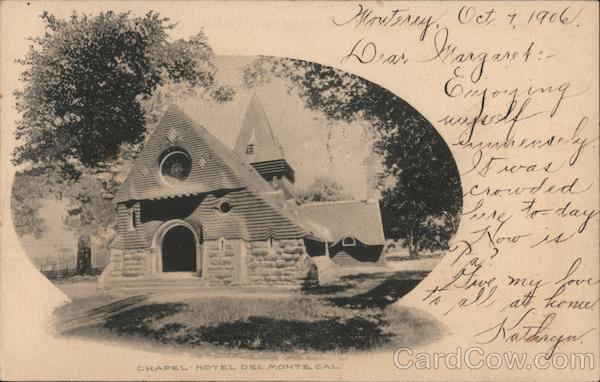 Monterey, Oct. 7, 1906.
Dear Margaret:-
Enjoying
myself
immensely.
It was
crowded
here to-day
How is
Pa?
Give my love
to all at home.
Kathryn.
CHAPEL- HOTEL DEL MONTE, CAL.
CardCow.com®